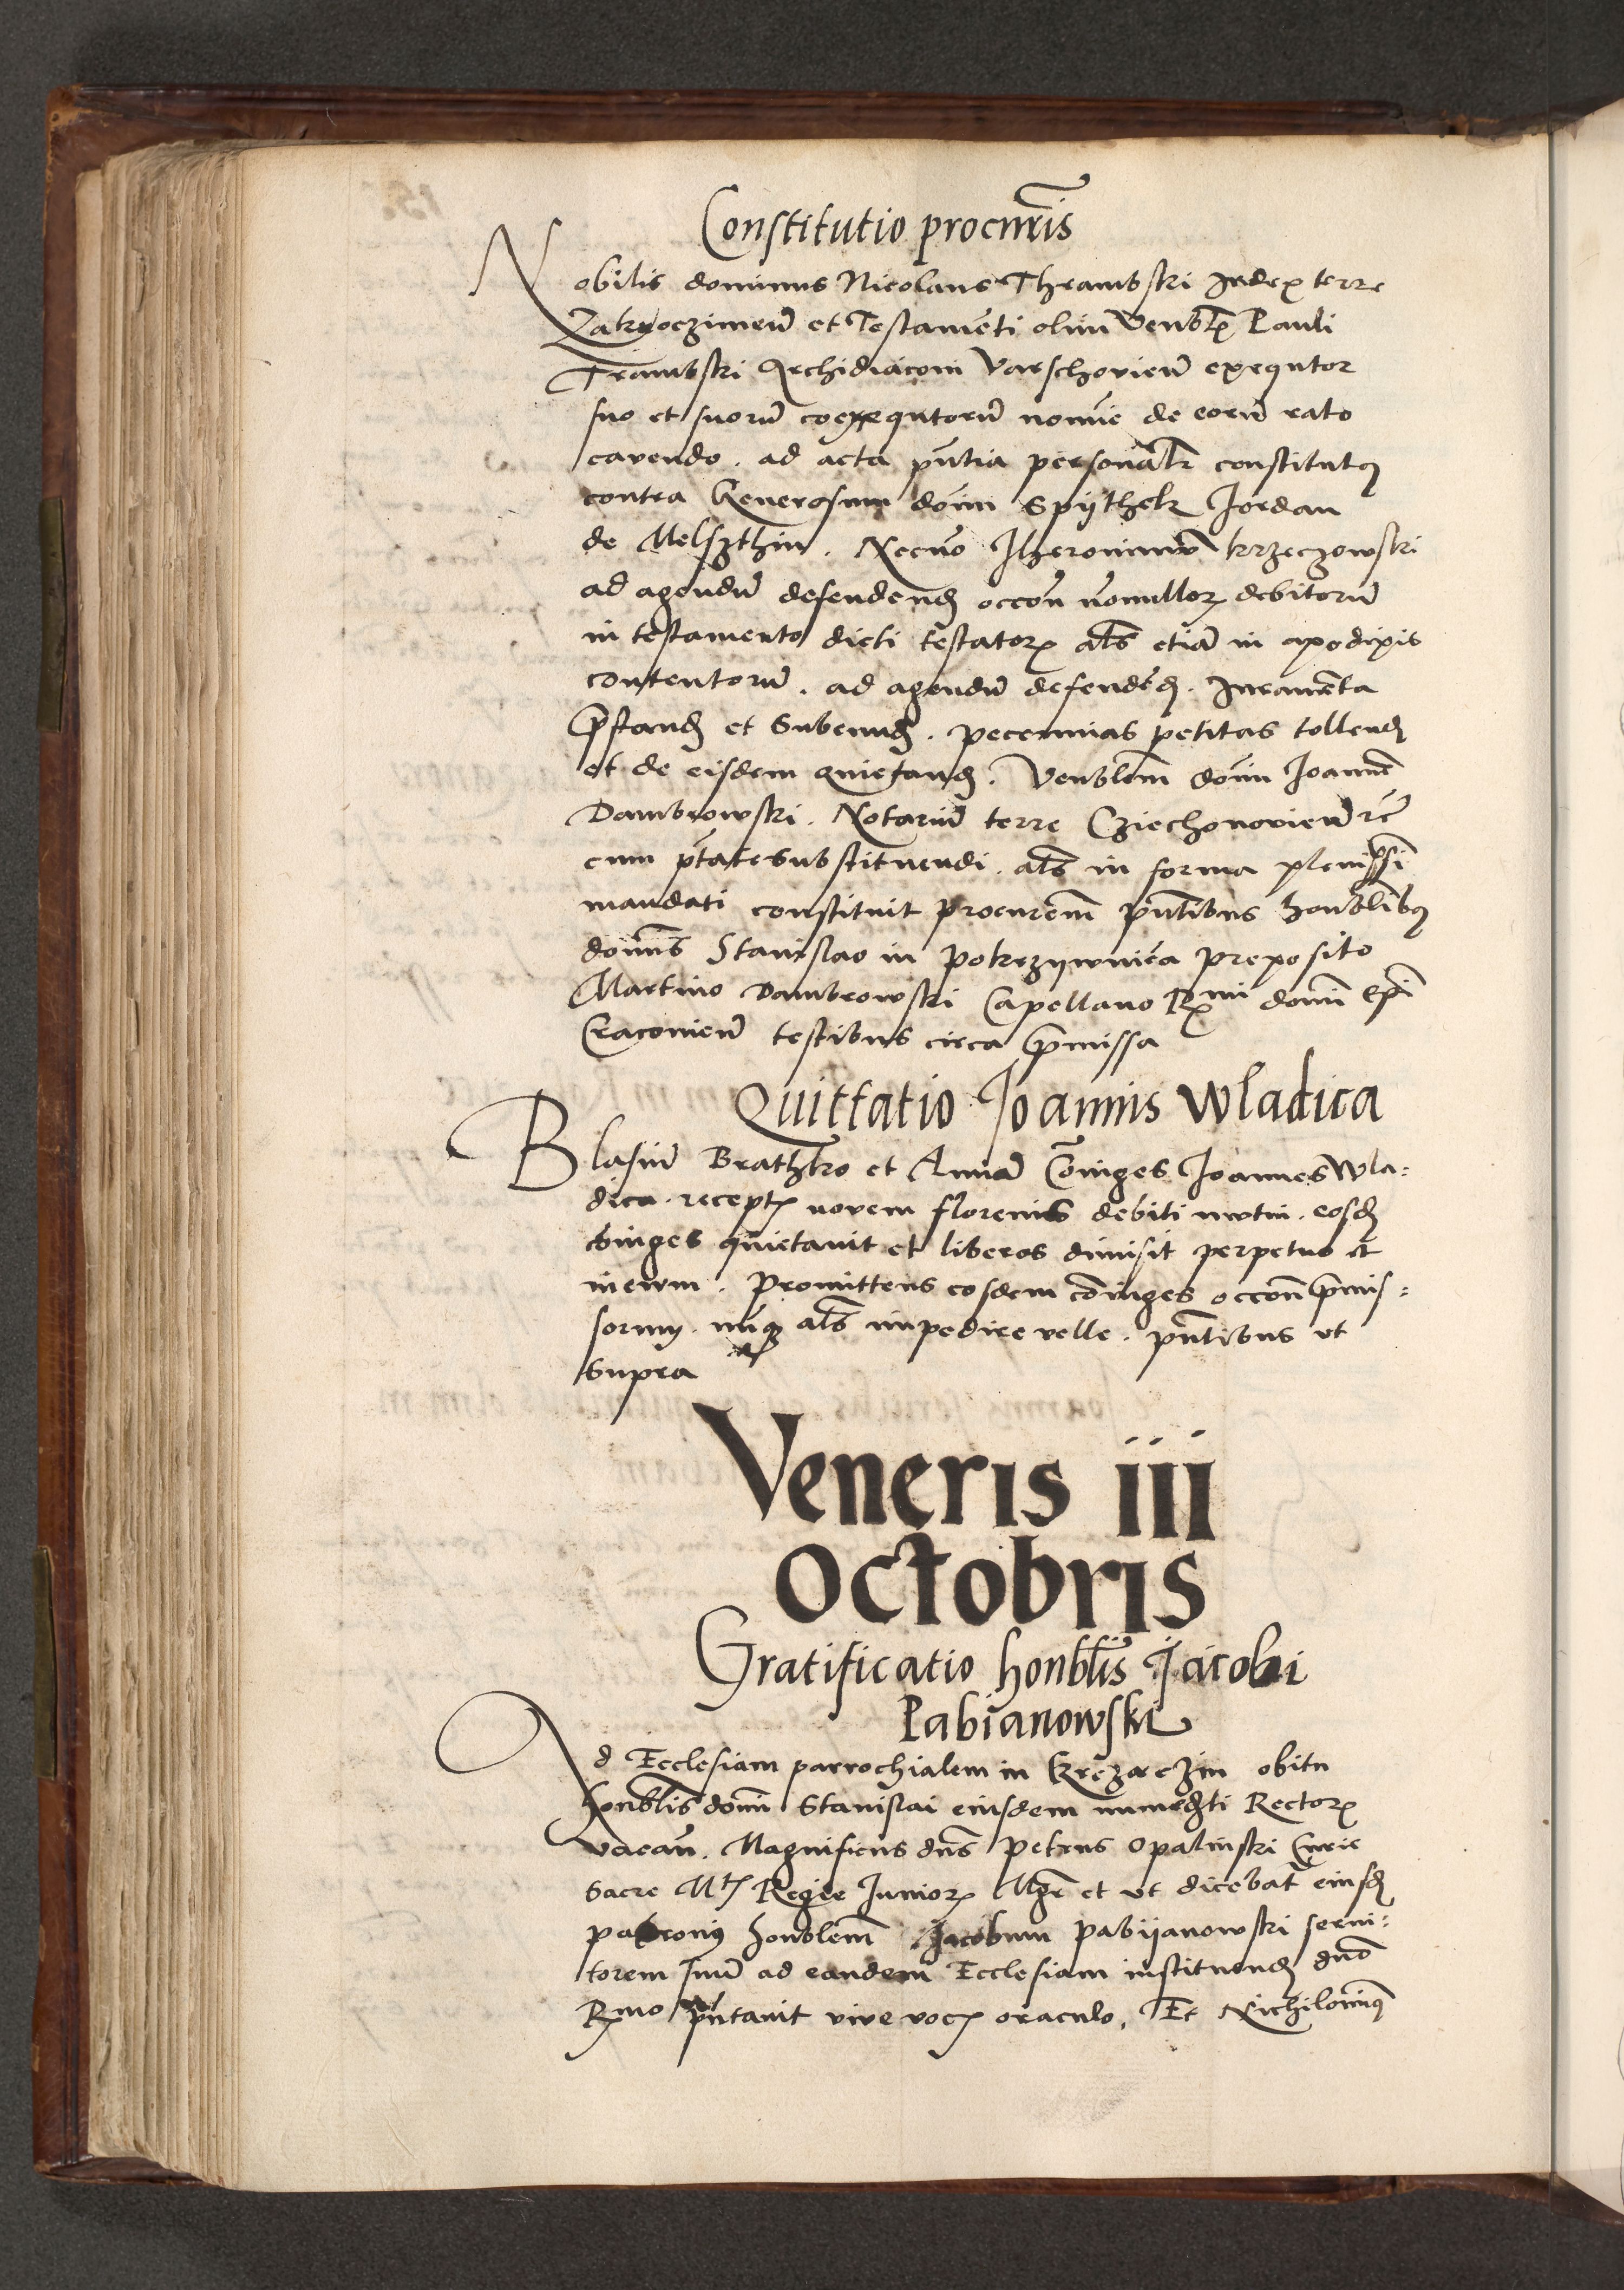 Constitutio procuris
Nobilis dominus Nicolaus Thrambski Iudex terre
Zakroczimeñ et Testamenti olim Venblis Pauli
Trambski Archidiaconi Varschovieñ exequtor
suo et suorũ coexequtorũ nomine de eorũ rato
cavendo. ad acta pñtia personalr constitutus
contra Generosum doñm Spythek Jordan
de Melszthin. Necno Iheronimũ krzeczowski
ad agendũ defendendũ occoñ nonullorũ debitorũ
in testamento dicti testatorꝭ als etiã in apodixis
contentorũ. ad agendũ defendẽdũ. Iuramenta
p̃standũ et Subeundũ. pecunnias petitas tollendũ
et de eisdem quietandũ. Venblem doñm Joannẽ
Dambrowski. Notariũ terre Cziechonovieñ
cum ptate substituendi. als in forma plenissi
mandati constituit procurem pñtibus honblibus
domñis Stanislao in pokrzywnica preposito
Martino Dambrowski Capellano Rmi domñi Epi
Cracovieñ testibus circa p̃missa
Quittatio Joannis Wladica
Blasiũ Brathko et Annã Coniuges Joannes Wla-
dica. receptꝭ novem florenis debiti mutui. eosdẽ
coniuges quietavit et liberos dimisit perpetuo et
in evum. Promittens eosdem coniuges occoñ p̃mis-
sorum. nunqȝ als impedire velle. pñtibus ut
Supra
Veneris iii
Octobris
Gratificatio honblis Jacobi
Pabianowski
Ad Ecclesiam parrochialem in krczaczin obitu
honblis domñi Stanislai eiusdem immedti Rectorꝭ
vacañ. Magnificus dñs Petrus Opalinski Curie
Sacre Mtꝭ Regie Iuniorꝭ Mgr et ut dicebat eiusdẽ
patronus honblem Jacobum pabyanowski servi-
torem suũ ad eandem Ecclesiam instituendũ dño
Rmo pñtavit vive vocꝭ oraculo. Et Nichilominus